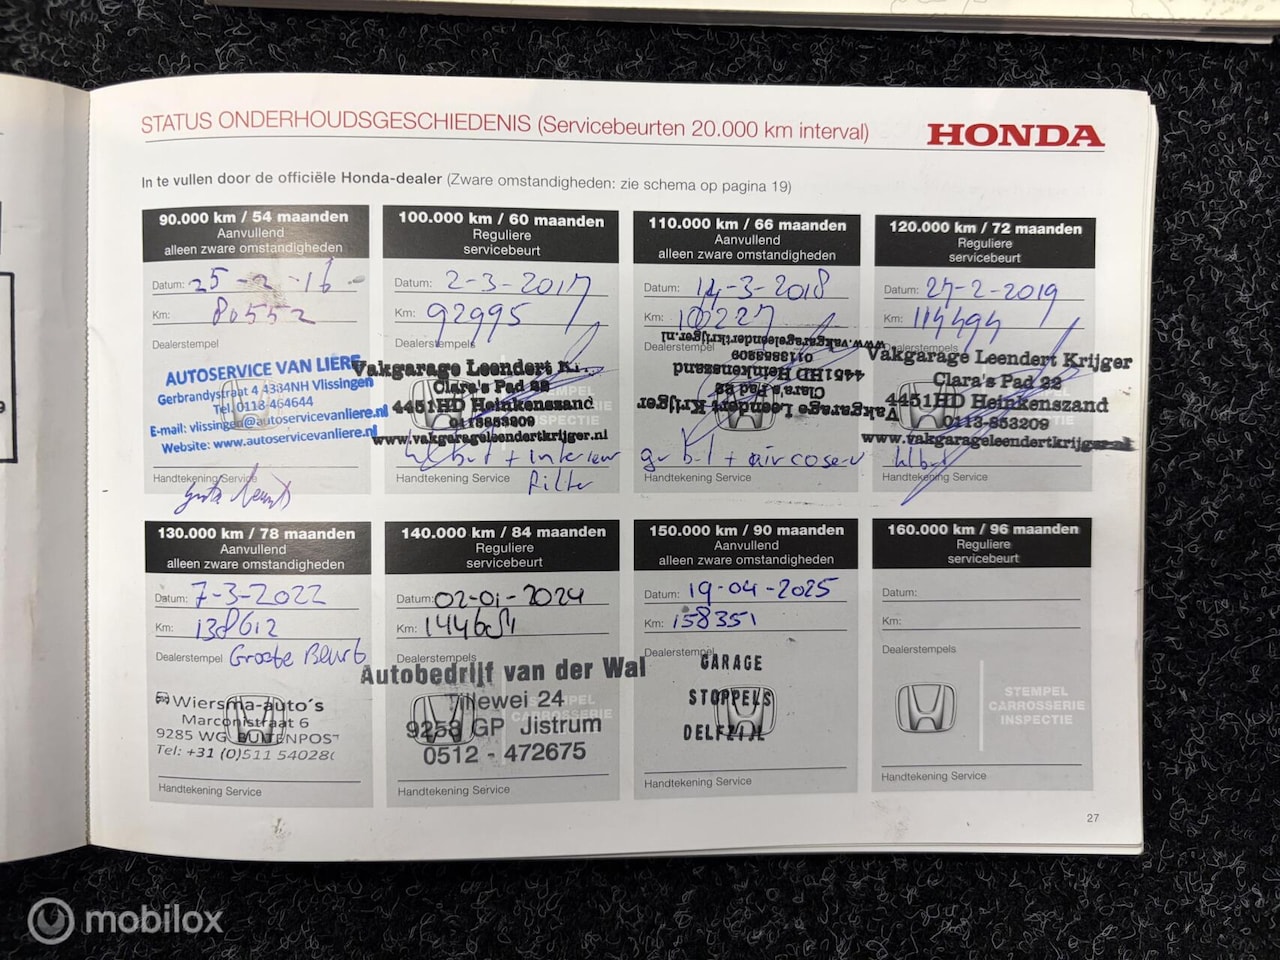 STATUS ONDERHOUDSGESCHIEDENIS (Servicebeurten 20.000 km interval)
HONDA
In te vullen door de officiële Honda-dealer (Zware omstandigheden: zie schema op pagina 19)
90.000 km / 54 maanden
Aanvullend
alleen zware omstandigheden
Datum: 25-2-16
Km: 80552
Dealerstempel
AUTOSERVICE VAN LIERE
Gerbrandystraat 4 4334NH Vlissingen
Tel. 0118 464644
E-mail: vlissingen@autoservicevanliere.nl
Website: www.autoservicevanliere.nl
Handtekening Service
100.000 km / 60 maanden
Reguliere
servicebeurt
Datum: 2-3-2017
Km: 92995
Dealerstempels
Vakgarage Leendert
Clara's Pad 22
4451HD Heinkenszand
0113853209
www.vakgarageleendertkrijger.nl
+ interieur
filter
Handtekening Service
110.000 km / 66 maanden
Aanvullend
alleen zware omstandigheden
Datum: 14-3-2018
Km: 100227
Dealerstempel
Vakgarage Leendert Krijger
Clara's Pad 22
4451HD Heinkenszand
0113853209
www.vakgarageleendertkrijger.nl
Handtekening Service
120.000 km / 72 maanden
Reguliere
servicebeurt
Datum: 27-2-2019
Km: 114494
Dealerstempels
Vakgarage Leendert Krijger
Clara's Pad 22
4451HD Heinkenszand
0113-853209
www.vakgarageleendertkrijger.nl
Handtekening Service
130.000 km / 78 maanden
Aanvullend
alleen zware omstandigheden
Datum: 7-3-2022
Km: 138612
Dealerstempel Groote Beurt
Wiersma-auto's
Marconistraat 6
9285 WG BUITENPOST
Tel: +31 (0)511 54028
Handtekening Service
140.000 km / 84 maanden
Reguliere
servicebeurt
Datum: 02-01-2024
Km:
Dealerstempels
Autobedrijf van der Wal
Tillewei 24
9258 GP Jistrum
0512 - 472675
STEMPEL
CARROSSERIE
INSPECTIE
Handtekening Service
150.000 km / 90 maanden
Aanvullend
alleen zware omstandigheden
Datum: 19-04-2025
Km: 158351
Dealerstempel
GARAGE
STOPPELS
DELFZIJL
Handtekening Service
160.000 km / 96 maanden
Reguliere
servicebeurt
Datum:
Km:
Dealerstempels
STEMPEL
CARROSSERIE
INSPECTIE
Handtekening Service
27
mobilox